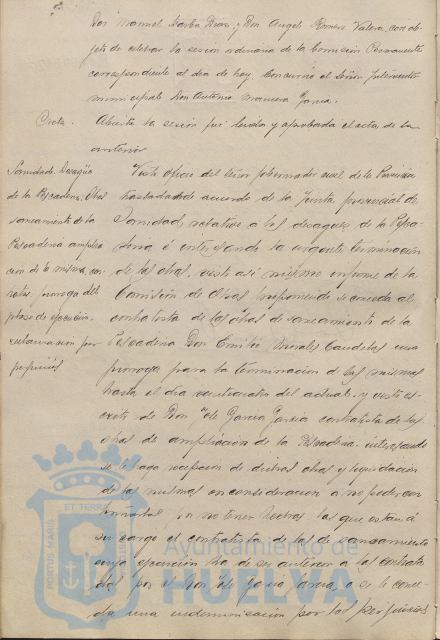 Don Manuel Barba Díaz y Don Angel Romero Valera, con ob-
jeto de celebrar la sesión ordinaria de la Comisión Permanente
correspondiente al dia de hoy. Concurrió el Señor Interventor
municipal Don Antonio Manuera Garcia.
Acta. Abierta la sesión fué leida y aprobada el acta de la
anterior
Sanidad. Desagüe
de la Pescaderia. Obras
saneamiento de la
Pescaderia amplia
ción de la misma, con
tratos, prorroga del
plazo de ejecución.
reclamación por
perjuicios
Visto oficio del Señor Gobernador civil de la Provincia
trasladando acuerdo de la Junta provincial de
Sanidad, relativo a los desagues de la Pesca-
deria é interesando la urgente terminación
de las obras, visto asi mismo informe de la
Comisión de Obras proponiendo se conceda al
contratista de las obras de saneamiento de la
Pescaderia Don Emilio Morales Candelas una
prorroga para la terminacion de las mismas
hasta el dia del actual, y visto es-
crito de Don José Garcia Garcia contratista de las
obras de ampliación de la Pescaderia, interesando
se le haga recepcion de dichas obras y liquidación
de las mismas en consideracion a no poder ter-
minarlas por no tener hechas las que están á
su cargo el contratista de las de saneamiento
cuya ejecución ha de ser anterior a las contrata
das por el Don José Garcia Garcia, o se le conce-
da una indemnización por los perjuicios
ET TERRA
PORTUS MARIS
Ayuntamiento de
HUELVA